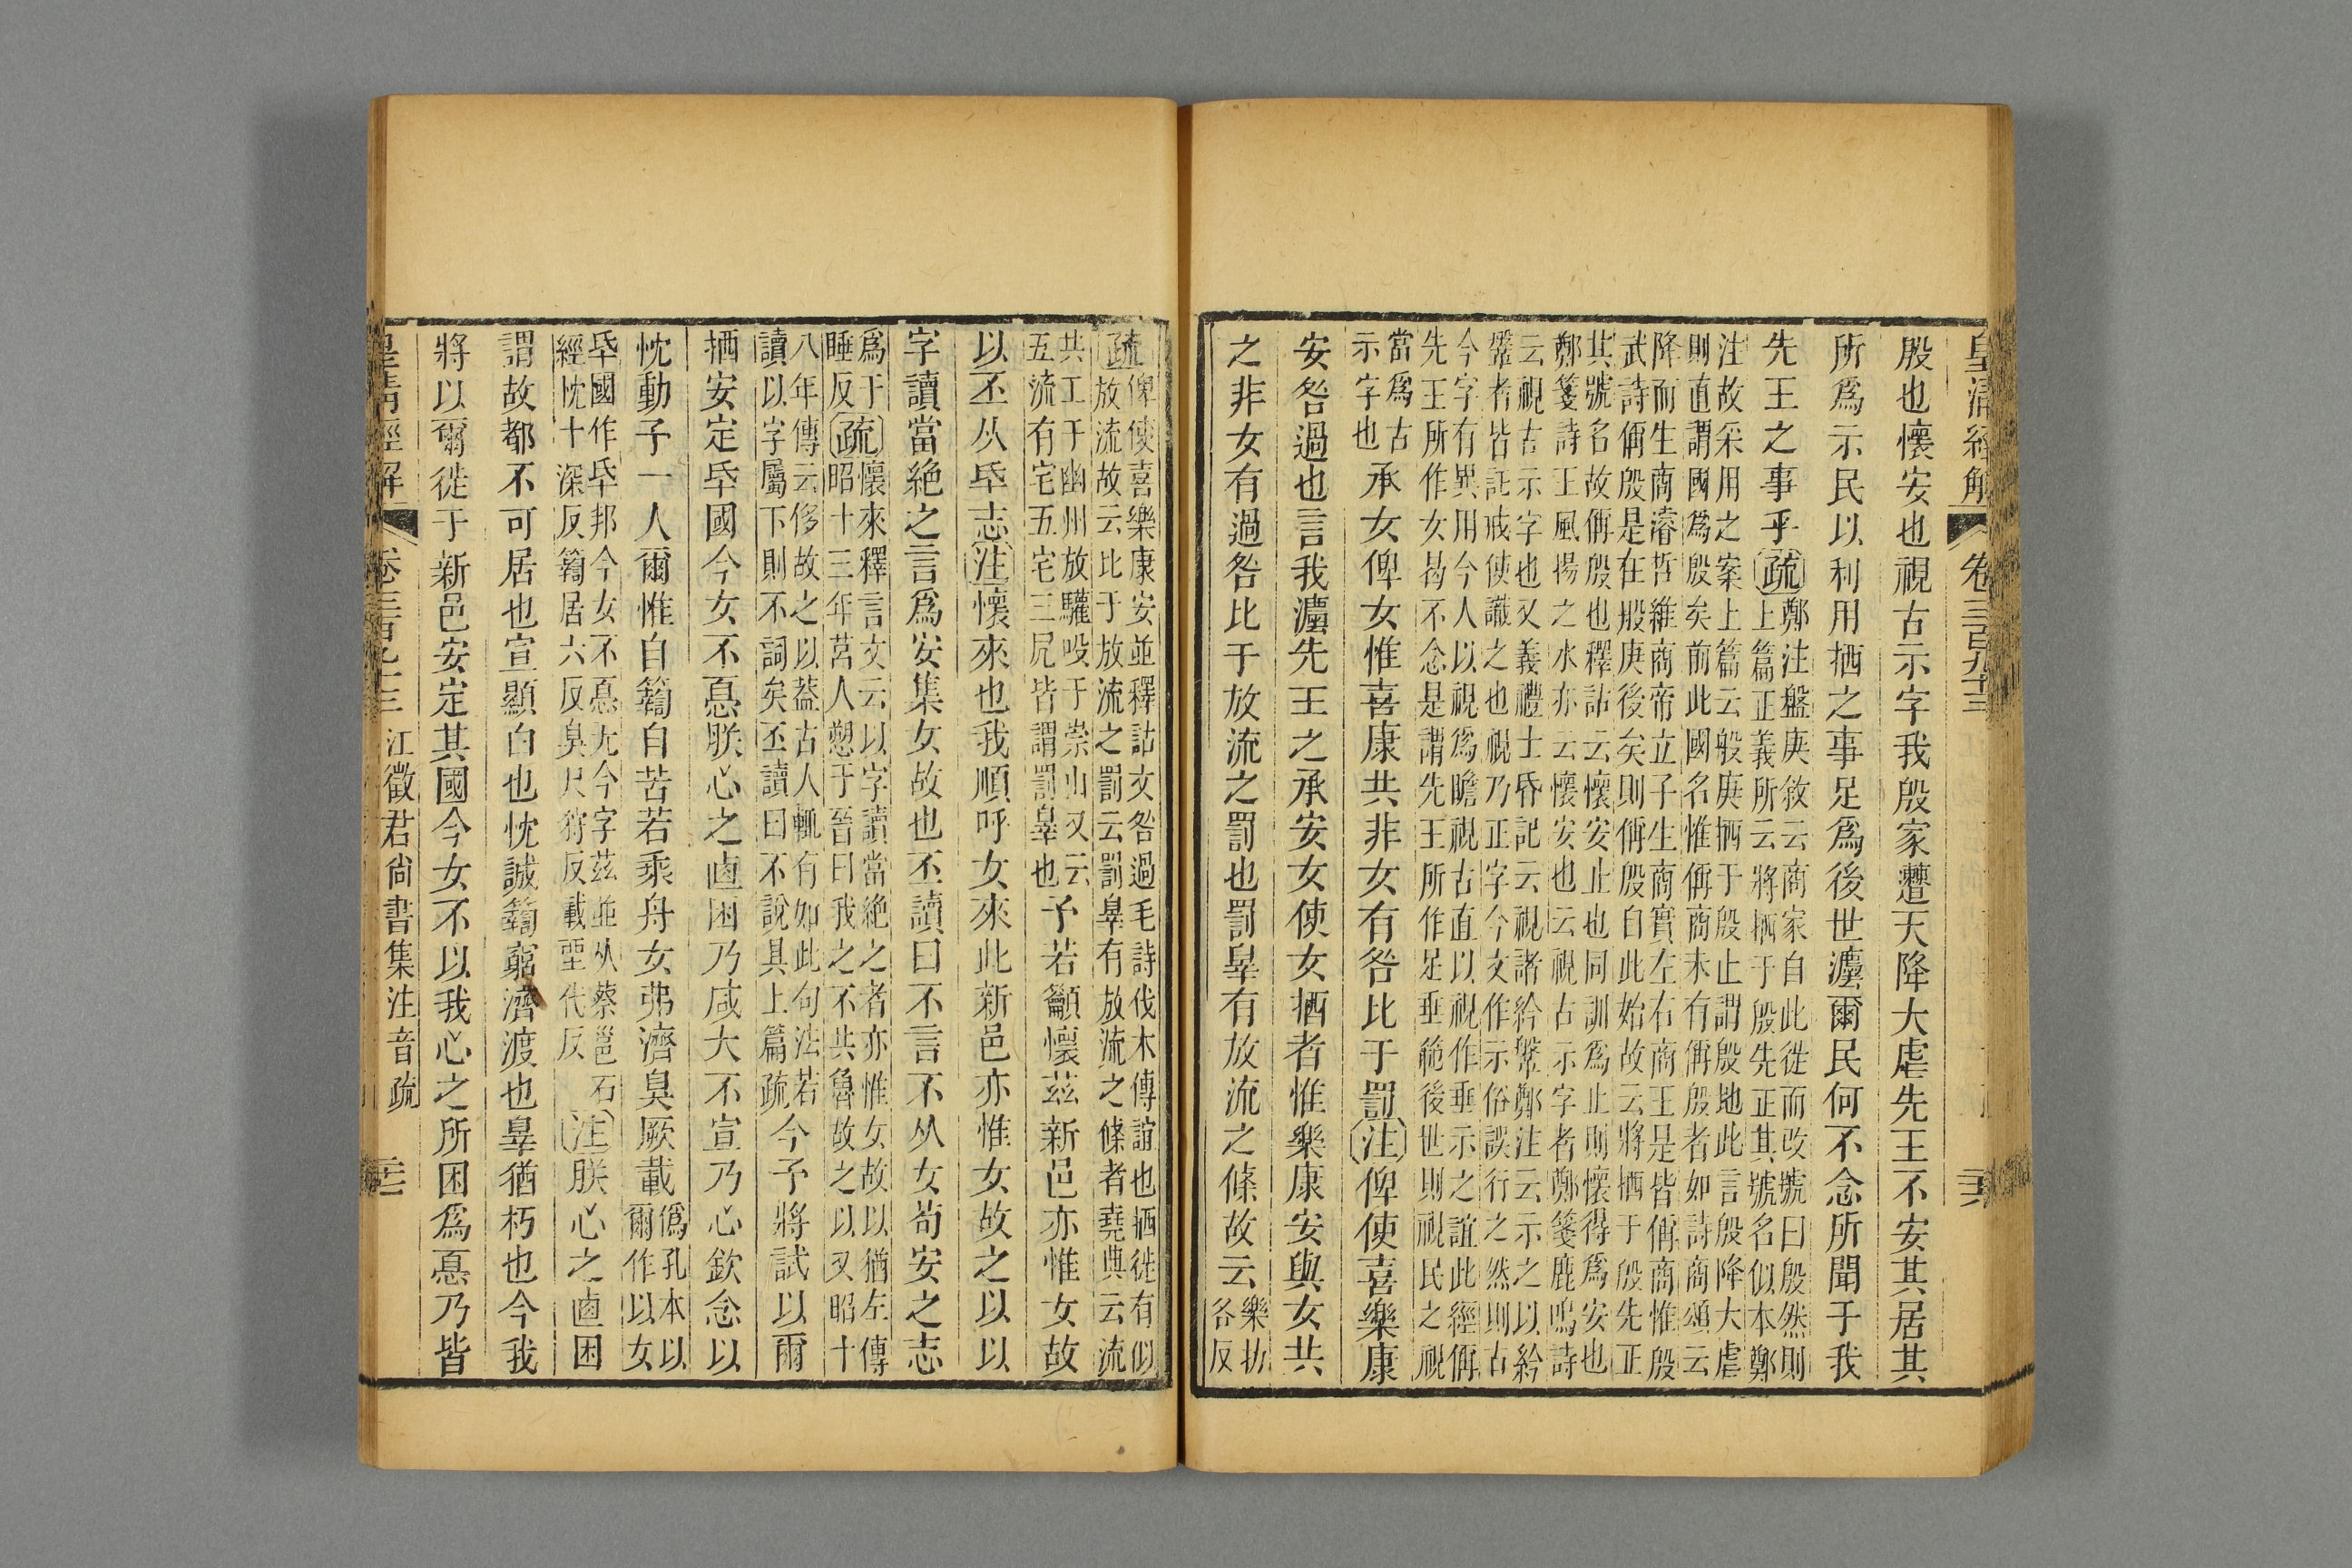 皇清經解 卷三百九十三
殷也懷安也視古示字我殷家遭天降大虐先王不安其居其
所爲示民以利用拪之事足爲後世灋爾民何不念所聞于我
先王之事乎疏鄭注盤庚敘云商家自此徙而改號曰殷然則
上篇正義所云將拪于殷先正其號名似本鄭
注故采用之案上篇云般庚拪于殷止謂殷地此言殷降大虐
則直謂國爲殷矣前此國名惟偁商未有偁殷者如詩商頌云
降而生商濬哲維商帝立子生商實左右商王是皆偁商惟殷
武詩偁殷是在般庚後矣則偁殷自此始故云將拪于殷先正
其號名故偁殷也釋詁云懷安止也同訓爲止則懷得爲安也
鄭箋詩王風揚之水亦云懷安也云視古示字者鄭箋鹿鳴詩
云視古示字也又義禮士昏記云視諸衿鞶鄭注云示之以衿
鞶者皆託戒使識之也視乃正字今文作示俗誤行之然則古
今字有異用今人以視爲瞻視古直以視作垂示之誼此經偁
先王所作女曷不念是謂先王所作足垂範後世則視民之視
當爲古
示字也承女俾女惟喜康共非女有咎比于罰注俾使喜樂康
安咎過也言我灋先王之承安女使女拪者惟樂康安與女共
之非女有過咎比于放流之罰也罰辠有放流之條故云樂扐
各反
疏俾使喜樂康安並釋詁文咎過毛詩伐木傳誼也拪徙有似
放流故云比于放流之罰云罰辠有放流之條者堯典云流
共工于幽州放驩吺于崇山又云
五流有宅五宅三凥皆謂罰辠也予若籲懷茲新邑亦惟女故
以丕从厥志注懷來也我順呼女來此新邑亦惟女故之以以
字讀當絶之言爲安集女故也丕讀曰不言不从女苟安之志
爲于
睡反疏懷來釋言文云以字讀當絶之者亦惟女故以猶左傳
昭十三年莒人愬于晉曰我之不共魯故之以又昭十
八年傳云侈故之以葢古人輒有如此句法若
讀以字屬下則不詞矣丕讀曰不說具上篇疏今予將試以爾
拪安定厥國今女不惪朕心之卣困乃咸大不宣乃心欽念以
忱動予一人爾惟自䈞自苦若乘舟女弗濟臭厥載僞孔本以
爾作以女
厥國作厥邦今女不惪尢今字茲並从蔡邕石
經忱十深反䈞居六反臭尺狩反載堊代反注朕心之卣困
謂故都不可居也宣顯白也忱誠䈞窮濟渡也辠猶朽也今我
將以爾徙于新邑安定其國今女不以我心之所困爲惪乃皆
皇清經解 江徵君尙書集注音疏